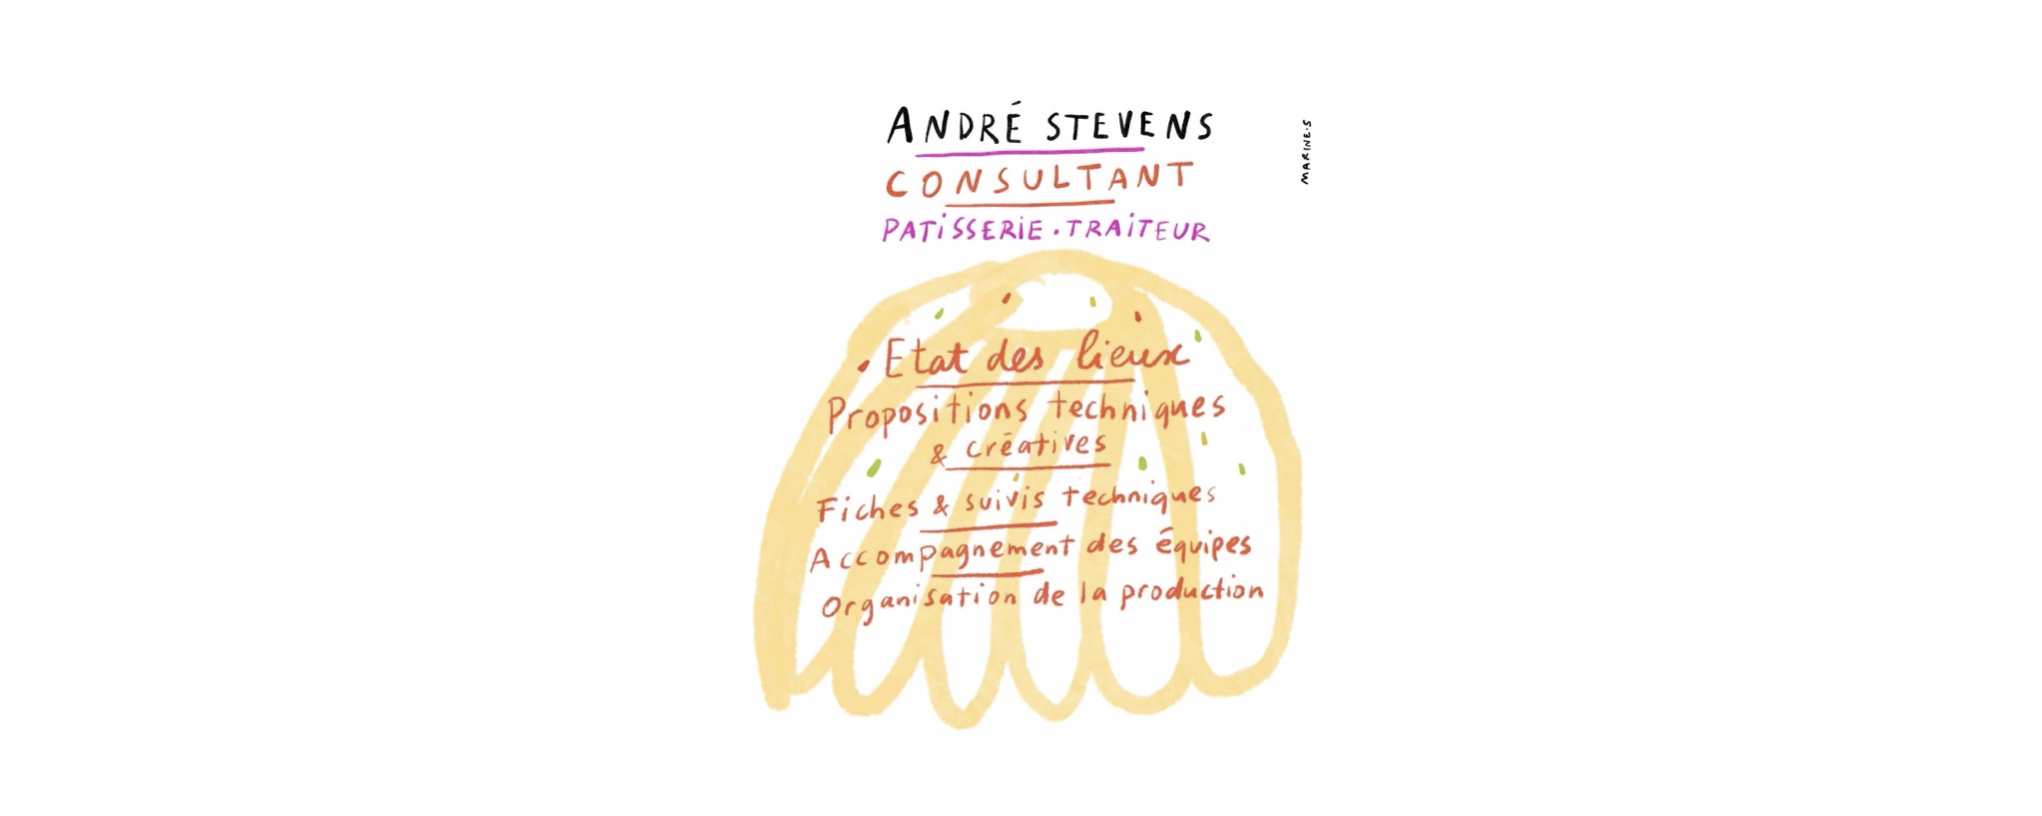 ANDRÉ STEVENS
CONSULTANT
PATiSSERiE · TRAiTEUR
MARINE·S
Etat des lieux
Propositions techniques
& créatives
Fiches & suivis techniques
Accompagnement des équipes
Organisation de la production